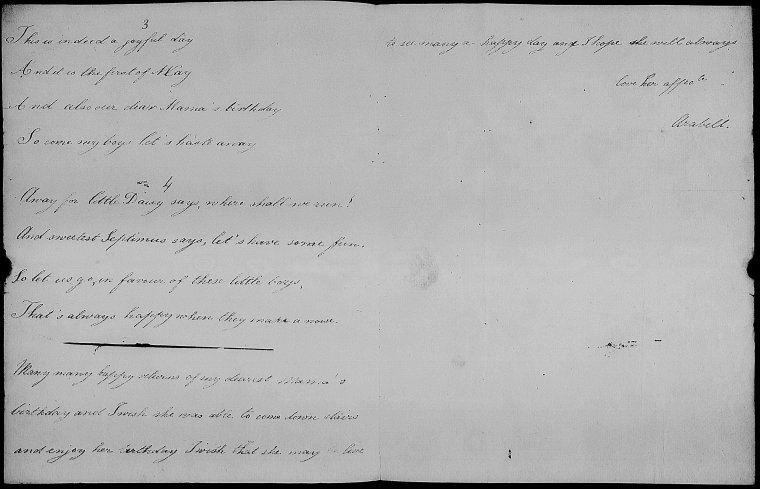 3
This is indeed a joyful day
And it is the first of May
And also our dear Mama's birthday
So come my boys let's haste away
4
Away for little Daisy says, where shall we run!
And sweetest Septimus says, let's have some fun.
So let us go, in favour of these little boys,
That's always happy when they make a noise.
Many many happy returns of my dearest Mama's
birthday and I wish she was able to come down stairs
and enjoy her birthday I wish that she may live
to see many a happy day and I hope she will always
love her affecte
Arabell.